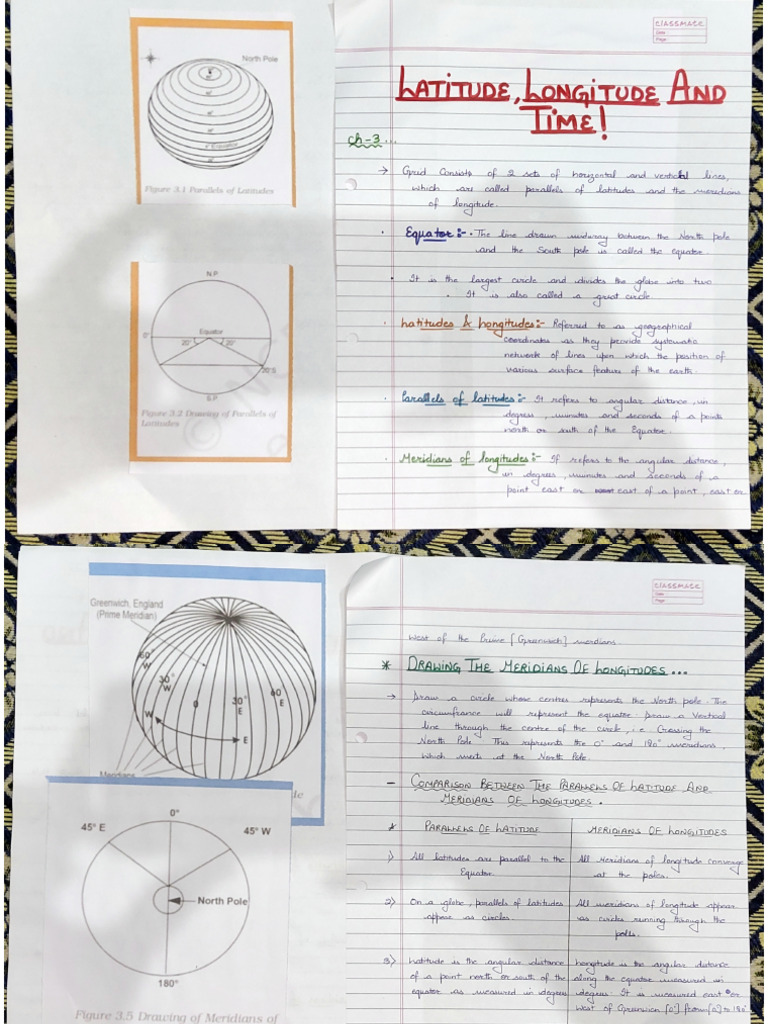 North Pole
Equator
Figure 3.1 Parallels of Latitudes
N.P
0°
Equator
20°
20°
20°S
S.P
Figure 3.2 Drawing of Parallels of
Latitudes
CLASSMATE
Date
Page
LATITUDE, LONGITUDE AND
TIME!
Ch-3...
→ Grid Consists of 2 sets of horizontal and vertical lines,
which are called parallels of latitudes and the meridians
of longitude.
· Equator:- · The line drawn midway between the North pole
and the South pole is called the equator.
· It is the largest circle and divides the globe into two
· It is also called a great circle
· Latitudes & Longitudes:- Referred to as geographical
coordinates as they provide systematic
network of lines upon which the position of
various surface feature of the earth.
· Parallels of latitudes:- It refers to angular distance, in
degrees, minutes and seconds of a points
north or south of the Equator.
· Meridians of longitudes:- If refers to the angular distance,
in degrees, minutes and seconds of a
point east or east of a point, east or
Greenwich, England
(Prime Meridian)
60°
W
30°
W
0
30°
E
60
E
W
E
Meridians
le
45° E
0°
45° W
North Pole
180°
Figure 3.5 Drawing of Meridians of
CLASSMATE
Date
Page
West of the Prime [Greenwich] meridians.
* DRAWING THE MERIDIANS OF LONGITUDES...
→ Draw a circle whose centres represents the North pole. The
circumfrance will represent the equator. Draw a Vertical
line through the centre of the circle, i.e Crossing the
North Pole. This represents the 0° and 180° meridians,
which meets at the North Pole.
- COMPARISON BETWEEN THE PARALLELS OF LATITUDE AND
MERIDIANS OF LONGITUDES.
* PARALLELS OF LATITUDE MERIDIANS OF LONGITUDES
1) All latitudes are parallel to the All Meridians of longitude converge
Equator. at the poles.
2) On a globe, parallels of latitudes All meridians of longitude appear
appear as circles. as circles running through the
polls.
3) Latitude is the angular distance Longitude is the angular distance
of a point north or south of the along the equator measured in
equator as measured in degrees degrees. It is measured east or
West of Greenwich [0°] from [0] to 180°